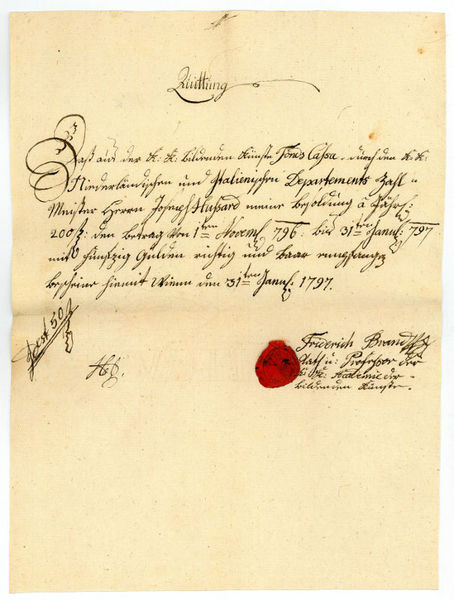 Quittung
Daß aus der K: K: bildenden Künste Fonds Cassa. durch den K: K:
Niederländischen und Italienischen Departements Zahl-
Meister Herrn Joseph Hussard meine Besoldung à Jährl:
200 f: den betrag von 1ten Novemb. 796. bis 31ten Janu: 797
mit fünfzig Gulden richtig und baar empfange
bescheine hiemit Wienn den 31ten Janu: 1797.
50
Friderich Brand
Rath u: Professor der
K: K: Academie der
bildenden Künste.